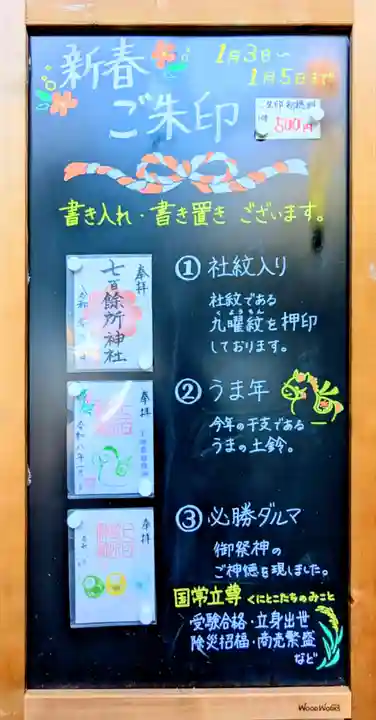 新春
ご朱印
1月3日〜
1月5日まで
500円
書き入れ・書き置き ございます。
奉拝
七百餘所神社
①社紋入り
社紋である
くようもん
九曜紋を押印
しております。
奉拝
令和八年一月
②うま年
今年の干支である
うまの土鈴。
奉拝
③必勝ダルマ
御祭神の
ご神徳を現しました。
国常立尊 くにとこたちのみこと
受験合格・立身出世
除災招福・商売繁盛
など
WOODWORKS